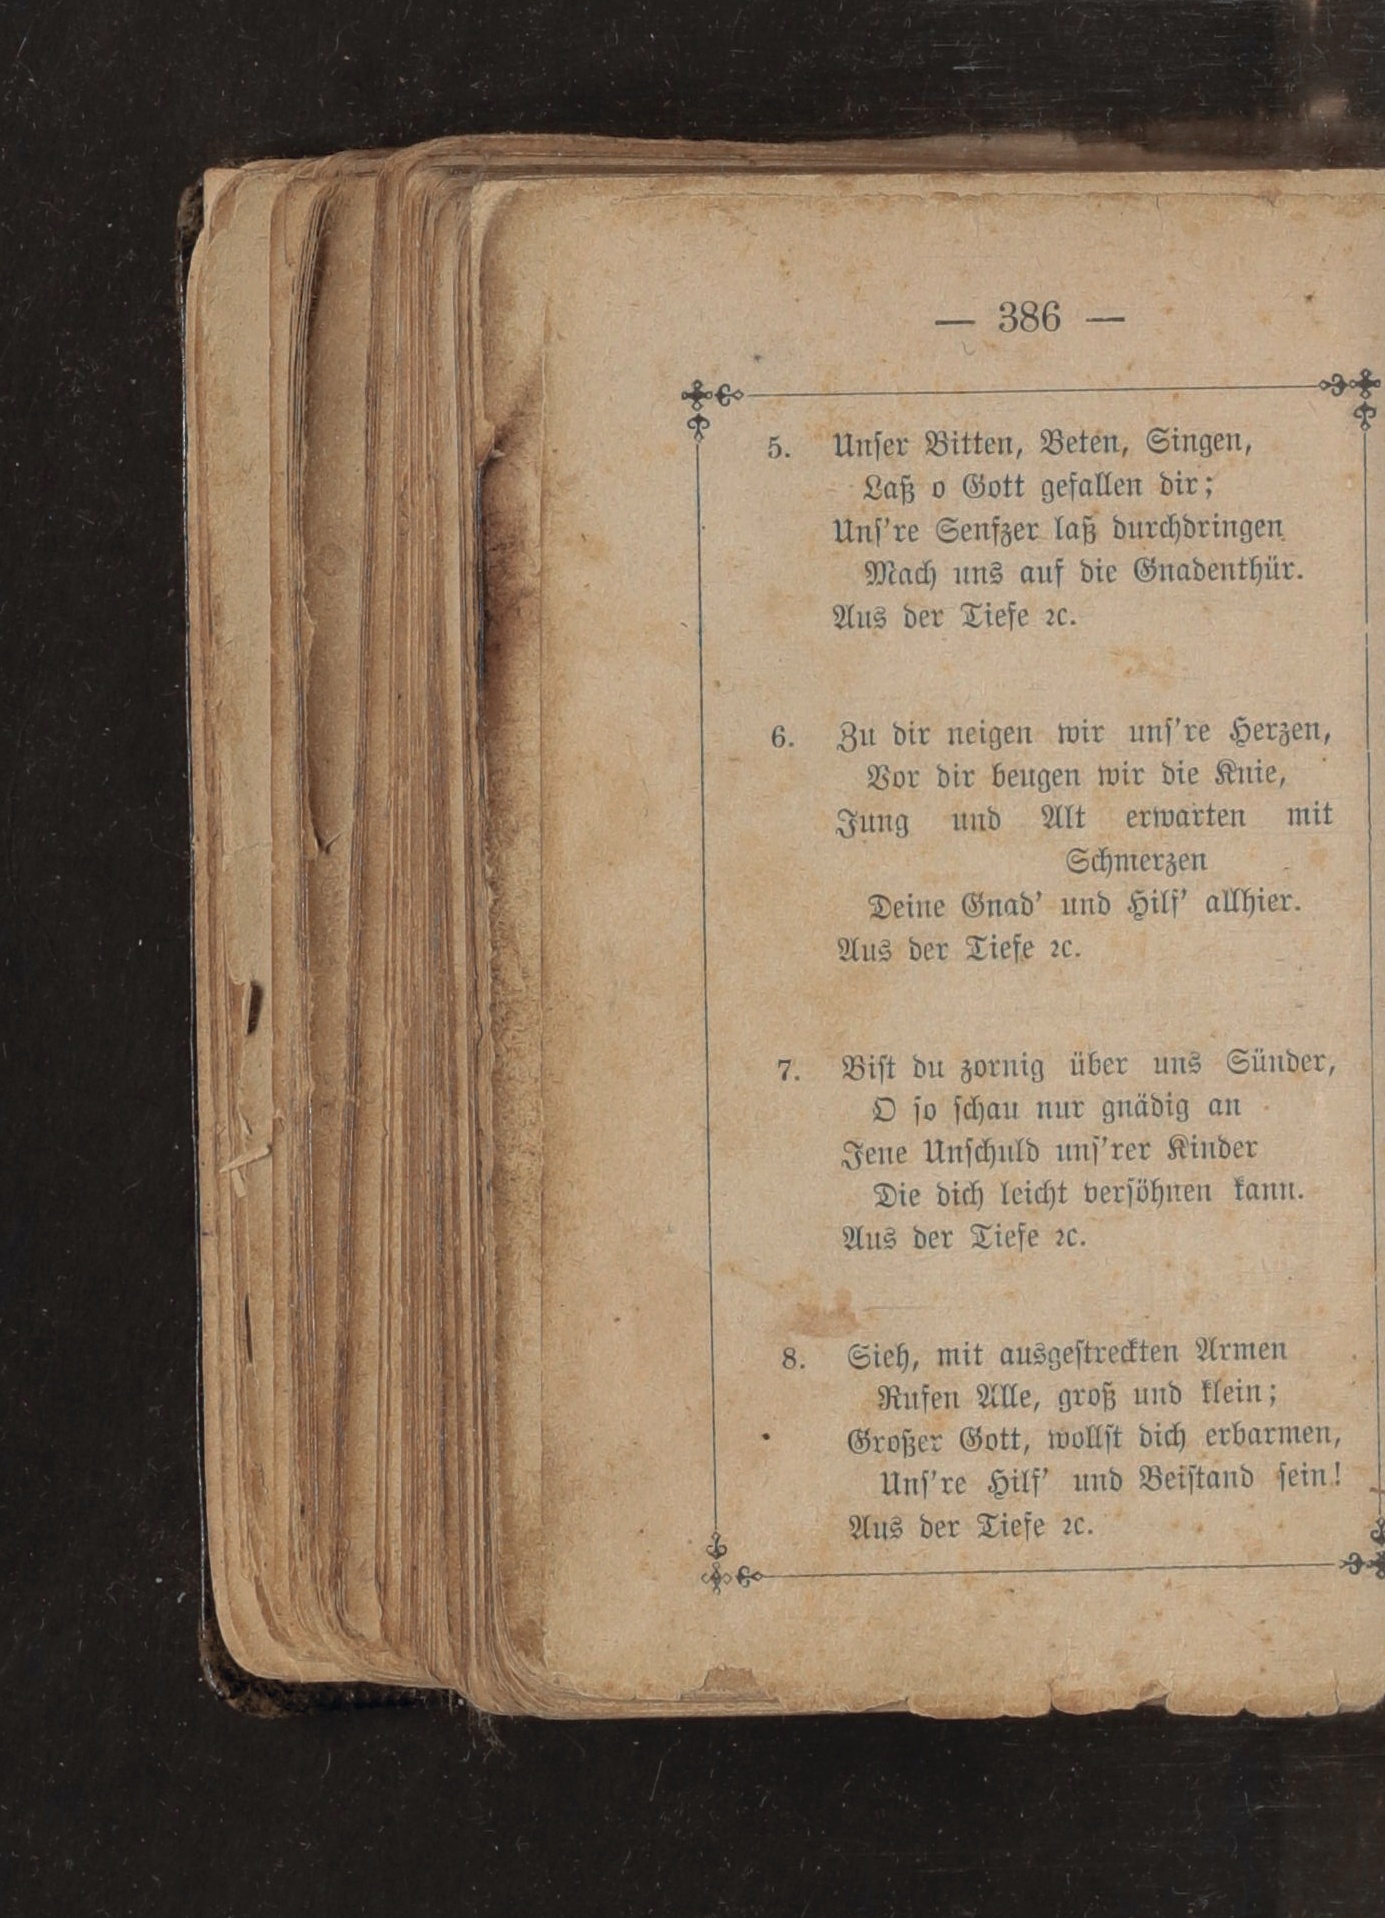 — 386 —
5. Unſer Bitten, Beten, Singen,
Laß o Gott gefallen dir;
Unſ're Senfzer laß durchdringen
Mach uns auf die Gnadenthür.
Aus der Tiefe ꝛc.
6. Zu dir neigen wir unſ're Herzen,
Vor dir beugen wir die Knie,
Jung und Alt erwarten mit
Schmerzen
Deine Gnad' und Hilf' allhier.
Aus der Tiefe ꝛc.
7. Biſt du zornig über uns Sünder,
O ſo ſchau nur gnädig an
Jene Unſchuld unſ'rer Kinder
Die dich leicht verſöhnen kann.
Aus der Tiefe ꝛc.
8. Sieh, mit ausgeſtreckten Armen
Rufen Alle, groß und klein;
Großer Gott, wollſt dich erbarmen,
Unſ're Hilf' und Beiſtand ſein!
Aus der Tiefe ꝛc.